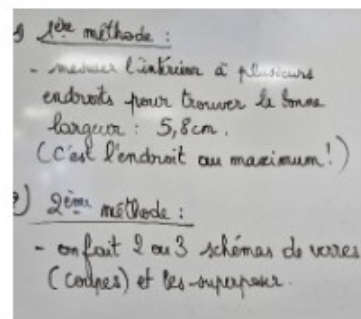 1ère méthode :
- mesurer l'intérieur à plusieurs
endroits pour trouver la bonne
largeur : 5,8cm.
(C'est l'endroit au maximum !)
2) 2ème méthode :
- on fait 2 ou 3 schémas de verres
(coupes) et les superposer.